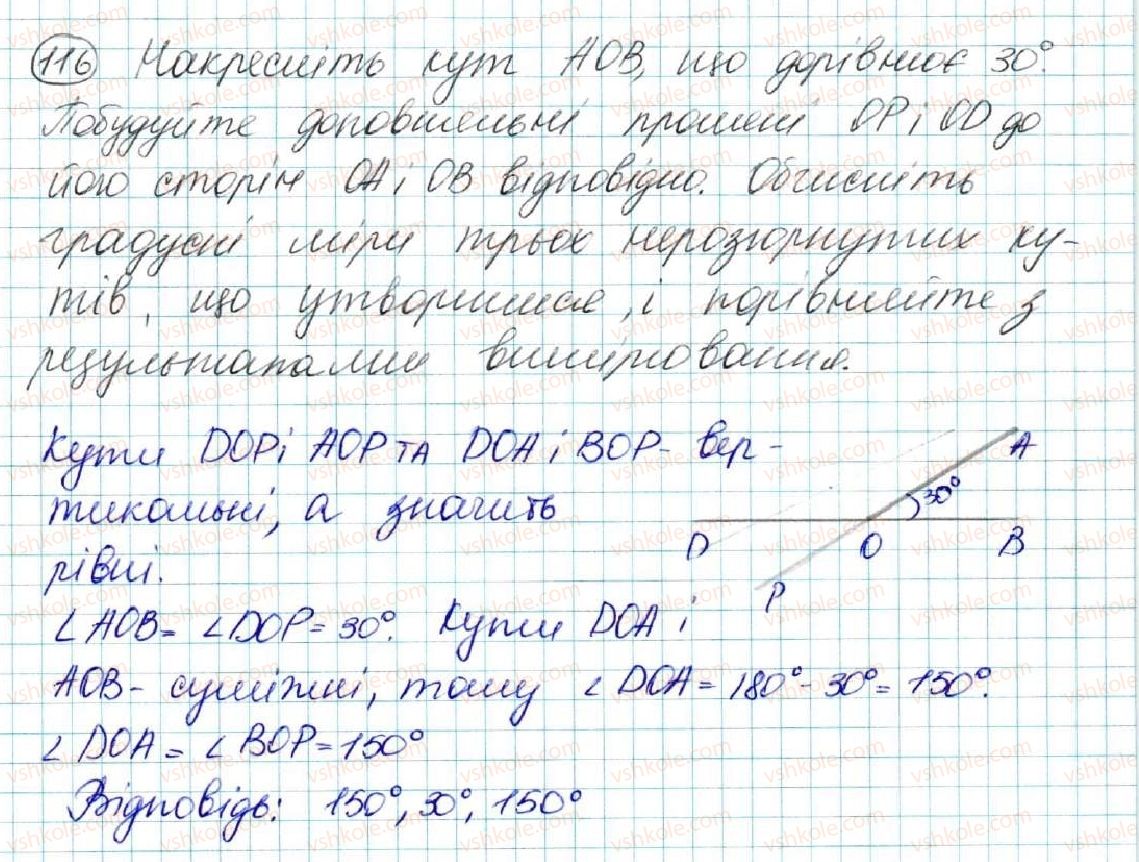 116 Накресліть кут AOB, що дорівнює 30°.
Побудуйте доповняльні промені OP і OD до
його сторін OA і OB відповідно. Обчисліть
градусні міри трьох нерозгорнутих ку-
тів, що утворилися, і порівняйте з
результатами вимірювання.
Кути DOP і AOP та DOA і BOP - вер-
тикальні, а значить
рівні.
A
30°
D O B
P
∠AOB = ∠DOP = 30°. Кути DOA і
AOB - суміжні, тому ∠DOA = 180° - 30° = 150°.
∠DOA = ∠BOP = 150°
Відповідь: 150°, 30°, 150°